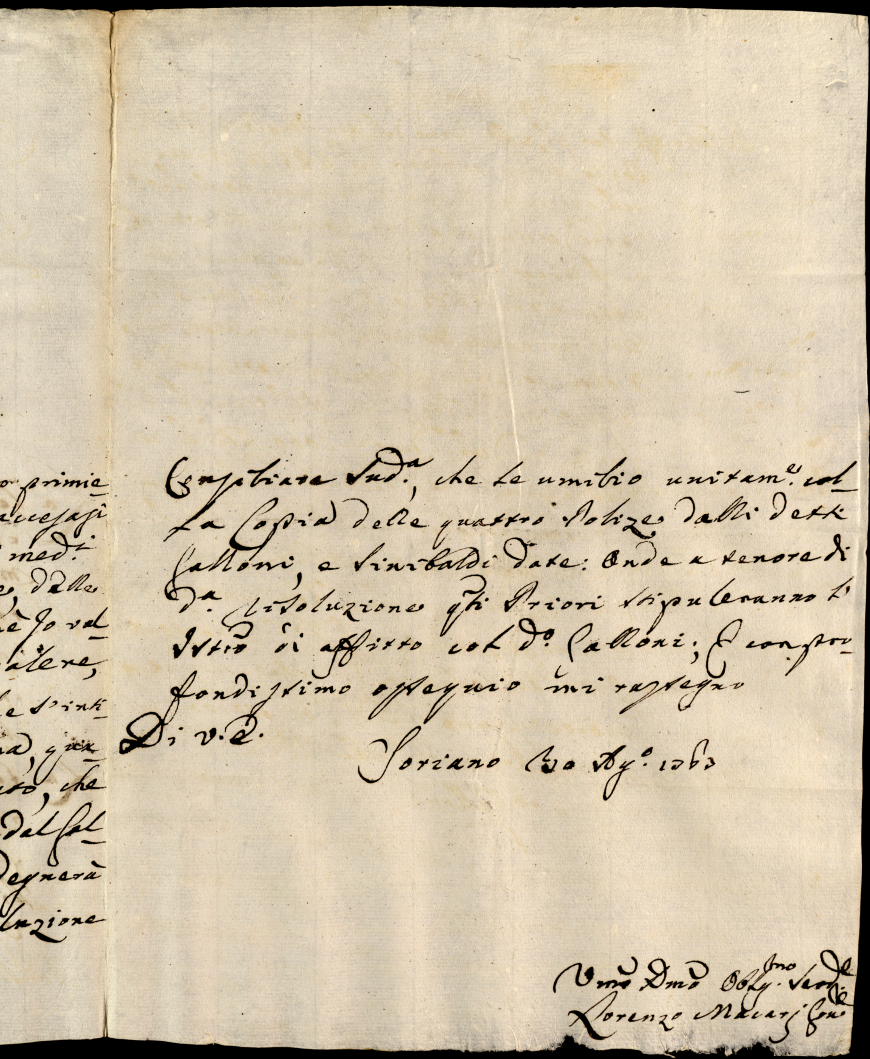 o primie-
accesasi
med.i
, delle
è Jo val-
alere,
le s'inti-
che
dal Cal-
degnerà
luzione
Consiliare Sud.a, che Le umilio unitam.e col-
la Copia delle quattro Polize dalli detti
Calloni, e Sinibaldi date: Onde a tenore di
d.a risoluzione q̃ti Priori stipuleranno l'
Istro di affitto col d.o Calloni; E con pro-
fondissimo ossequio mi rassegno
Di V. E.
Soriano 30 Ag.o 1763
Umo Dmo Obbg.mo Serv.e
Lorenzo Macarj